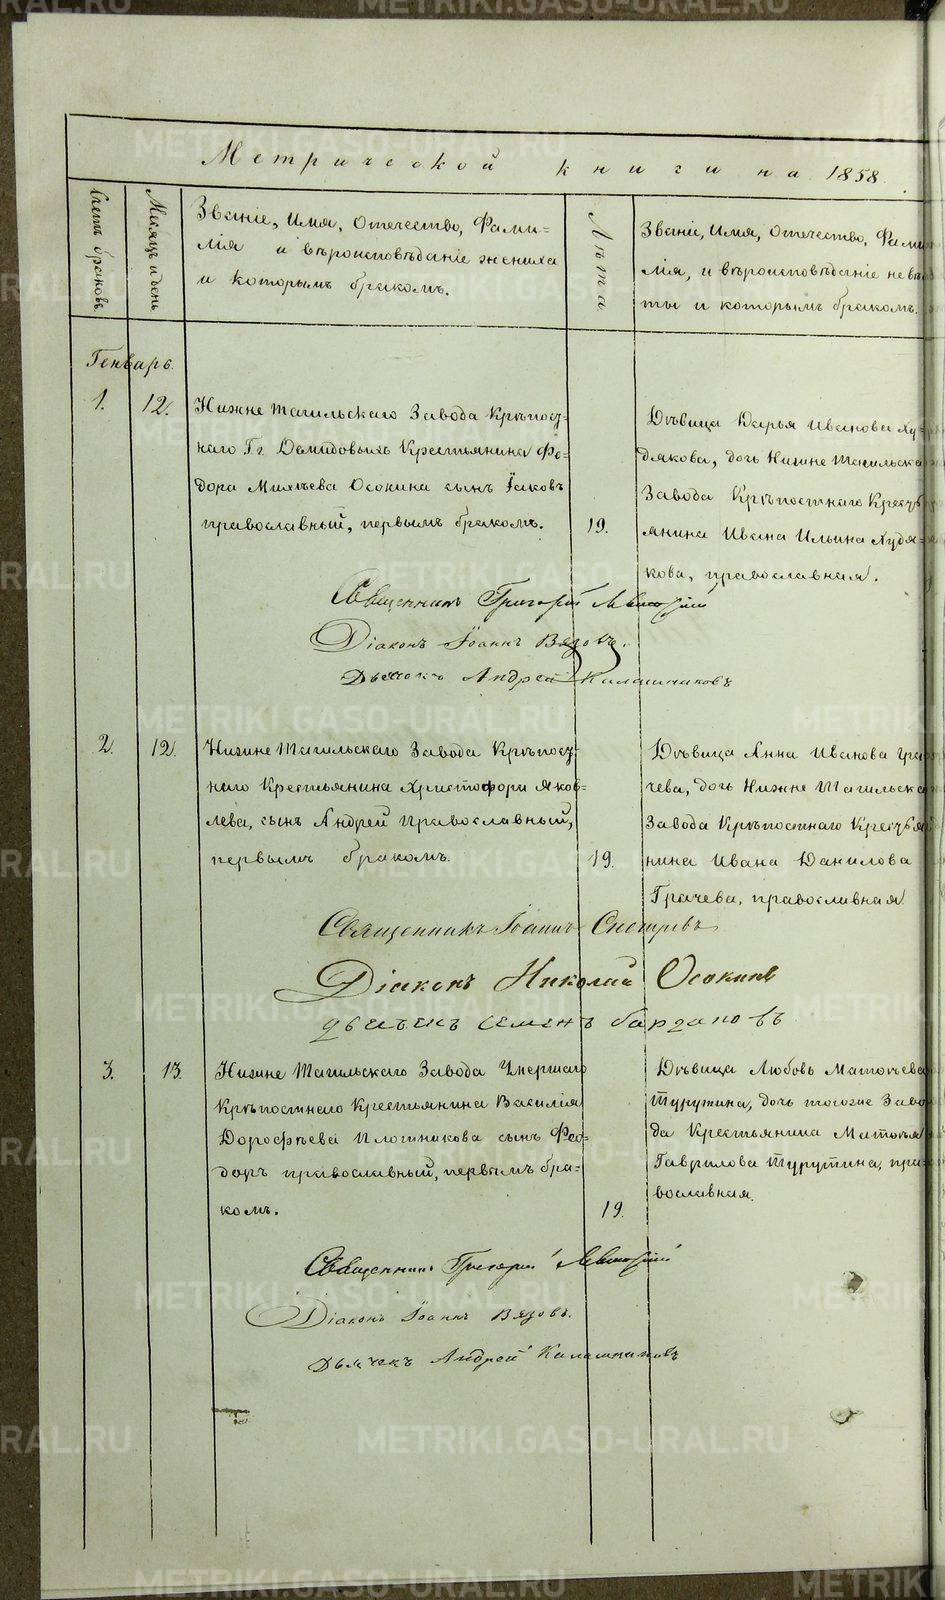 Метрической книги на 1858
Счетъ браковъ.
Месяцъ и день
Званіе, Имя, Отечество, Фами=
лія и вѣроисповѣданіе жениха
и которымъ бракомъ.
Лѣта
Званіе, Имя, Отечество, Фами
лія, и вѣроисповѣданіе невѣ
ты и которымъ бракомъ.
Генварь.
1. 12.
Нижне Тагильскаго Завода Крѣпост-
наго Гг. Демидовыхъ Крестьянина Фе-
дора Михѣева Осокина сынъ Іаковъ
православный, первымъ бракомъ.
19.
Дѣвица Дарья Иванова Ху-
дякова, дочь Нижне Тагильска
Завода Крѣпостнаго Кресть
янина Ивана Ильина Худя-
кова, православная.
Священникъ Григорій
Діаконъ Іоаннъ Вязовъ.
Дьячекъ Андрей Калашниковъ
2. 12.
Нижне Тагильскаго Завода Крѣпост-
наго Крестьянина Христофора Яков-
лева, сынъ Андрей православный,
первымъ бракомъ.
19.
Дѣвица Анна Иванова Гра
чева, дочь Нижне Тагильска
Завода Крѣпостнаго Крестья
нина Ивана Данилова
Грачева, православная
Священникъ Іоаннъ
Діаконъ Николай Осокинъ
дьячекъ Семенъ
3. 13.
Нижне Тагильскаго Завода Умершаго
Крѣпостнаго Крестьянина Василія
Дорофѣева Плотникова сынъ Фео-
доръ православный, первымъ бра-
комъ.
19.
Дѣвица Любовь Матвѣева
Турутина, дочь тогоже Заво
да Крестьянина Матвѣя
Гаврилова Турутина, пра-
вославная.
Священникъ Григорій
Діаконъ Іоаннъ Вязовъ.
Дьячекъ Андрей Калашниковъ
METRIKI.GASO-URAL.RU